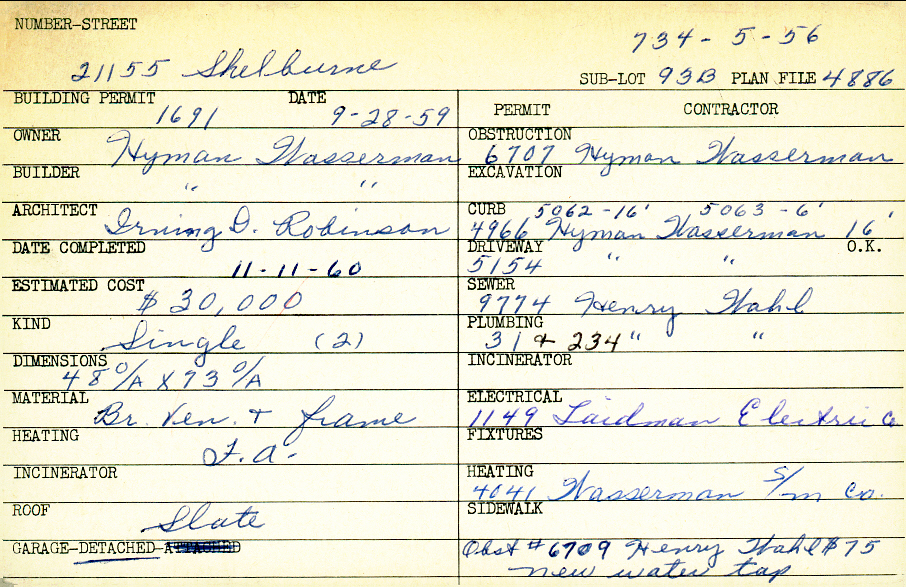 NUMBER-STREET
734-5-56
21155 Shelburne
SUB-LOT 93B PLAN FILE 4886
BUILDING PERMIT DATE
1691 9-28-59
OWNER Hyman Wasserman
BUILDER " "
ARCHITECT Irving D. Robinson
DATE COMPLETED
11-11-60
ESTIMATED COST
$ 30,000
KIND
Single (2)
DIMENSIONS
48 O/A X 73 O/A
MATERIAL
Br. Ven. + frame
HEATING
F.A.
INCINERATOR
ROOF
Slate
GARAGE-DETACHED-ATTACHED
PERMIT CONTRACTOR
OBSTRUCTION
6707 Hyman Wasserman
EXCAVATION
CURB 5062-16' 5063-6'
4966 Hyman Wasserman 16'
DRIVEWAY O.K.
5154 " "
SEWER
9774 Henry Wahl
PLUMBING
31 & 234 " "
INCINERATOR
ELECTRICAL
1149 Laidman Electric Co.
FIXTURES
HEATING
4041 Wasserman S/m Co.
SIDEWALK
Obst #6709 Henry Wahl $75
new water tap